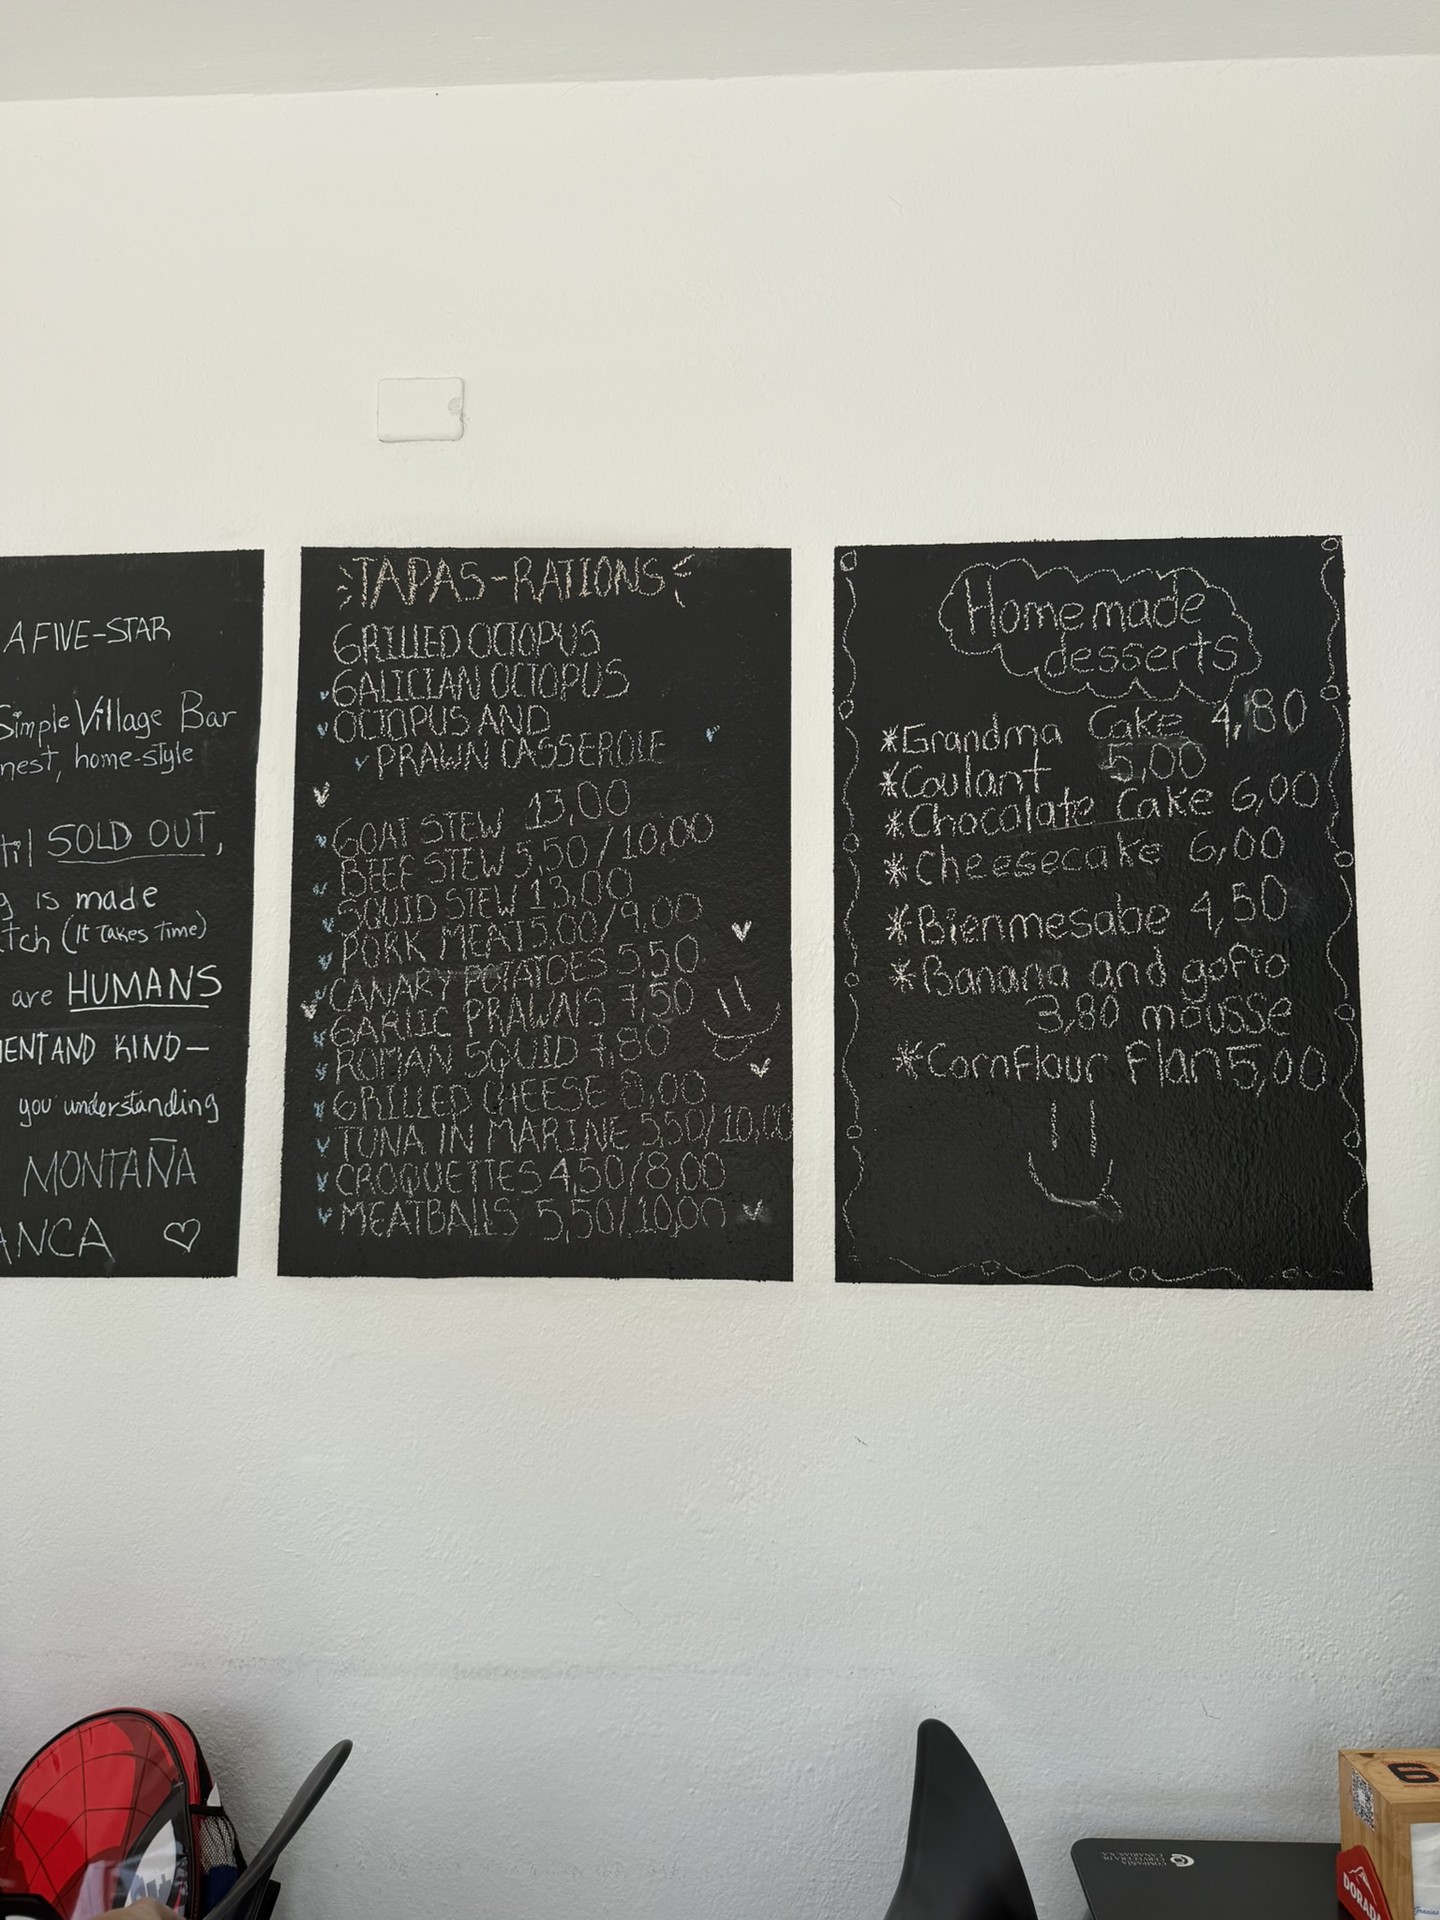 A FIVE-STAR
Simple Village Bar
nest, home-style
til SOLD OUT,
g is made
tch (It Takes Time)
are HUMANS
IENT AND KIND—
you understanding
MONTAÑA
ANCA
TAPAS-RATIONS
GRILLED OCTOPUS
GALICIAN OCTOPUS
OCTOPUS AND
PRAWN CASSEROLE
GOAT STEW 13,00
BEEF STEW 5,50/10,00
SQUID STEW 13,00
PORK MEAT 5.00/9,00
CANARY POTATOES 5,50
GARLIC PRAWNS 7,50
ROMAN SQUID 7,80
GRILLED CHEESE 8,00
TUNA IN MARINE 5,50/10,00
CROQUETTES 4,50/8,00
MEATBALLS 5,50/10,00
Homemade
desserts
*Grandma Cake 4,80
*Coulant 5,00
*Chocolate Cake 6,00
*Cheesecake 6,00
*Bienmesabe 4,50
*Banana and gofio
3,80 mousse
*Cornflour Flan 5,00
COMPAÑIA
CERVECERA DE
CANARIAS, S.A.
DORADA
Gracias